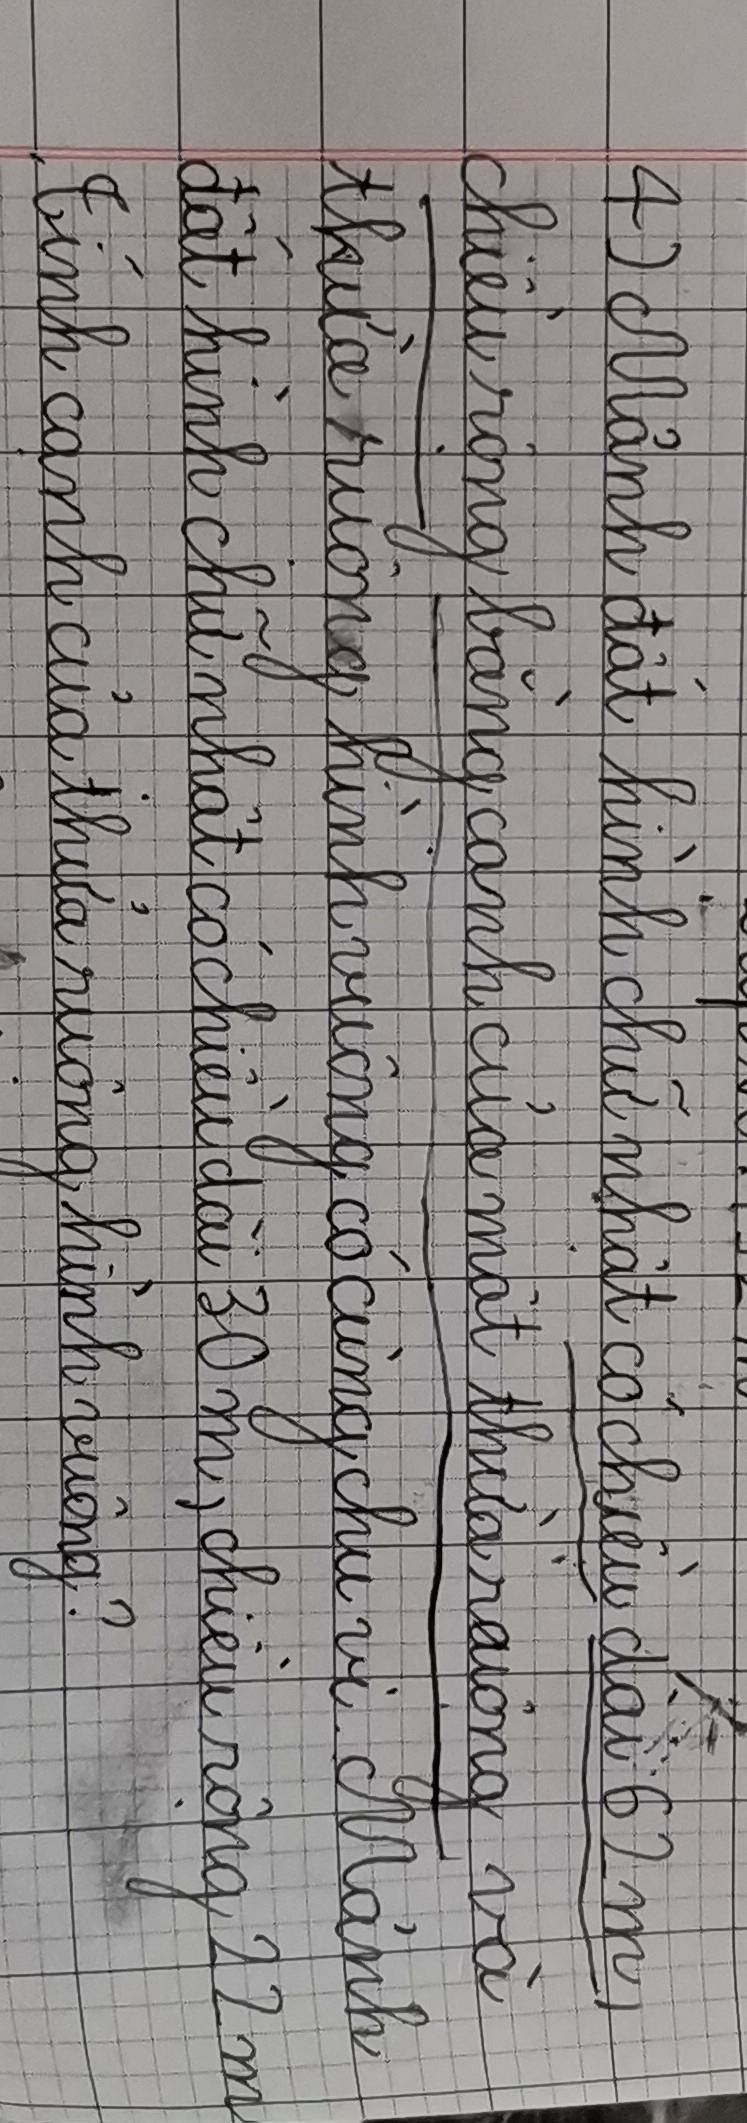 4) Mảnh đất hình chữ nhật có chiều dài 62 m,
chiều rộng bằng cạnh của một thửa ruộng và
thửa ruộng hình vuông có cùng chu vi. Mảnh
đất hình chữ nhật có chiều dài 30 m, chiều rộng 22 m
Tính cạnh của thửa ruộng hình vuông?